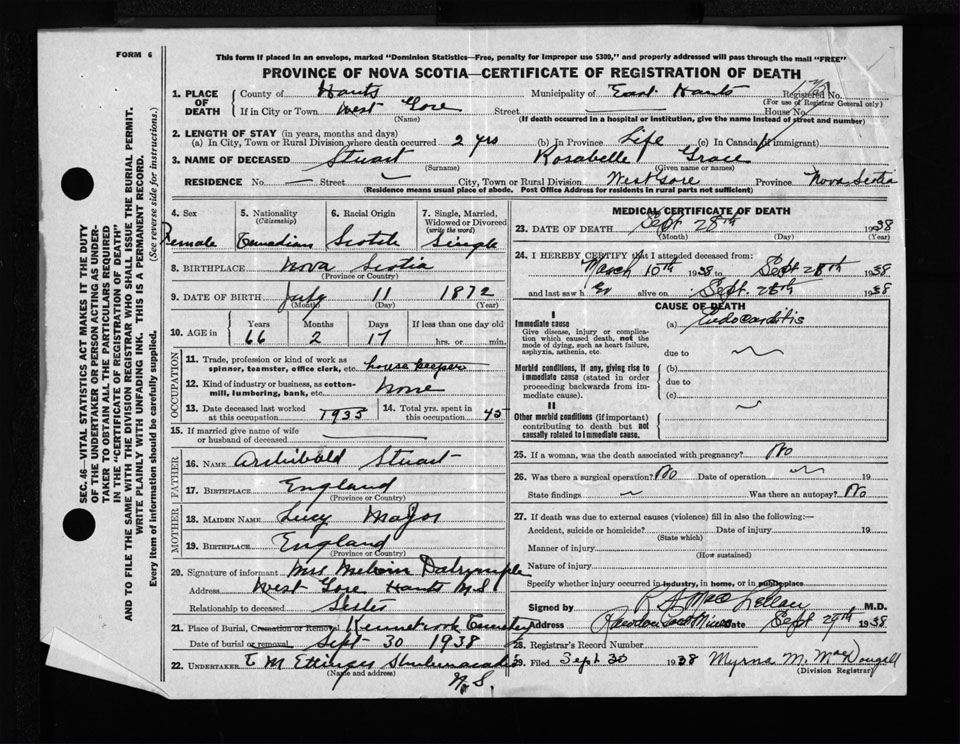 FORM 6
This form if placed in an envelope, marked "Dominion Statistics—Free, penalty for improper use $300," and properly addressed will pass through the mail "FREE"
PROVINCE OF NOVA SCOTIA—CERTIFICATE OF REGISTRATION OF DEATH
1. PLACE OF DEATH
County of Hants Municipality of East Hants Registered No.
(For use of Registrar General only)
If in City or Town West Gore Street — House No.
(Name) (If death occurred in a hospital or institution, give the name instead of street and number)
2. LENGTH OF STAY (in years, months and days)
(a) In City, Town or Rural Division where death occurred 2 yrs (b) In Province Life (c) In Canada (if immigrant)
3. NAME OF DECEASED Stuart Rosabelle Grace
(Surname) (Given name or names)
RESIDENCE No. — Street City, Town or Rural Division West Gore Province Nova Scotia
(Residence means usual place of abode. Post Office Address for residents in rural parts not sufficient)
4. Sex Female
5. Nationality (Citizenship) Canadian
6. Racial Origin Scotch
7. Single, Married, Widowed or Divorced (write the word) Single
8. BIRTHPLACE Nova Scotia
(Province or Country)
9. DATE OF BIRTH July 11 1872
(Month) (Day) (Year)
10. AGE in Years Months Days If less than one day old
66 2 17 hrs. or min.
OCCUPATION
11. Trade, profession or kind of work as spinner, teamster, office clerk, etc. housekeeper
12. Kind of industry or business, as cotton-mill, lumbering, bank, etc. None
13. Date deceased last worked at this occupation 1935
14. Total yrs. spent in this occupation 45
15. If married give name of wife or husband of deceased
FATHER
16. NAME Archibald Stuart
17. BIRTHPLACE England
(Province or Country)
MOTHER
18. MAIDEN NAME Lucy Major
19. BIRTHPLACE England
(Province or Country)
20. Signature of informant Mrs Melvin Dalrymple
Address West Gore Hants N.S.
Relationship to deceased Sister
21. Place of Burial, Cremation or Removal Kennetcook Cemetery
Date of burial or removal Sept 30 1938
22. UNDERTAKER E M Ettinger Shubenacadie
(Name and address) N.S.
MEDICAL CERTIFICATE OF DEATH
23. DATE OF DEATH Sept 28th 1938
(Month) (Day) (Year)
24. I HEREBY CERTIFY that I attended deceased from:
March 10th 1938 to Sept 28th 1938
and last saw her alive on Sept. 28th 1938
CAUSE OF DEATH
I
Immediate cause
Give disease, injury or complication which caused death, not the mode of dying, such as heart failure, asphyxia, asthenia, etc.
(a) Endocarditis
due to
Morbid conditions, if any, giving rise to immediate cause (stated in order proceeding backwards from immediate cause).
(b)
due to
(c)
II
Other morbid conditions (if important) contributing to death but not causally related to immediate cause.
25. If a woman, was the death associated with pregnancy? No
26. Was there a surgical operation? No Date of operation 19
State findings Was there an autopsy? No
27. If death was due to external causes (violence) fill in also the following:—
Accident, suicide or homicide? Date of injury 19
(State which)
Manner of injury
(How sustained)
Nature of injury
Specify whether injury occurred in industry, in home, or in public place
Signed by R A MacLellan M.D.
Address Rawdon Gold Mines Date Sept 29th 1938
28. Registrar's Record Number
29. Filed Sept 30 1938 Myrna M. MacDougall
(Division Registrar)
SEC. 46—VITAL STATISTICS ACT MAKES IT THE DUTY
OF THE UNDERTAKER OR PERSON ACTING AS UNDER-
TAKER TO OBTAIN ALL THE PARTICULARS REQUIRED
IN THE "CERTIFICATE OF REGISTRATION OF DEATH"
AND TO FILE THE SAME WITH THE DIVISION REGISTRAR WHO SHALL ISSUE THE BURIAL PERMIT.
WRITE PLAINLY WITH UNFADING INK. THIS IS A PERMANENT RECORD.
Every item of information should be carefully supplied. (See reverse side for instructions.)